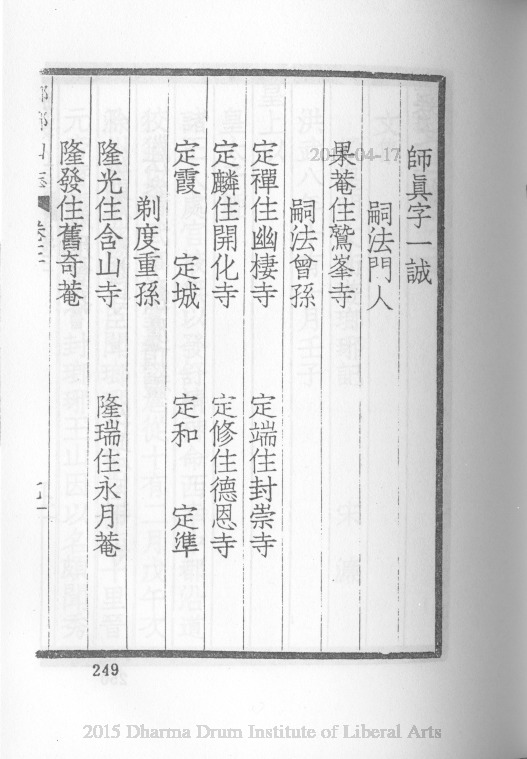 師眞字一誠
嗣法門人
果菴住鷲峯寺
嗣法曾孫
定禪住幽棲寺 定端住封崇寺
定麟住開化寺 定修住德恩寺
定霞 定城 定和 定準
剃度重孫
隆光住含山寺 隆瑞住永月菴
隆發住舊奇菴
249
2015 Dharma Drum Institute of Liberal Arts